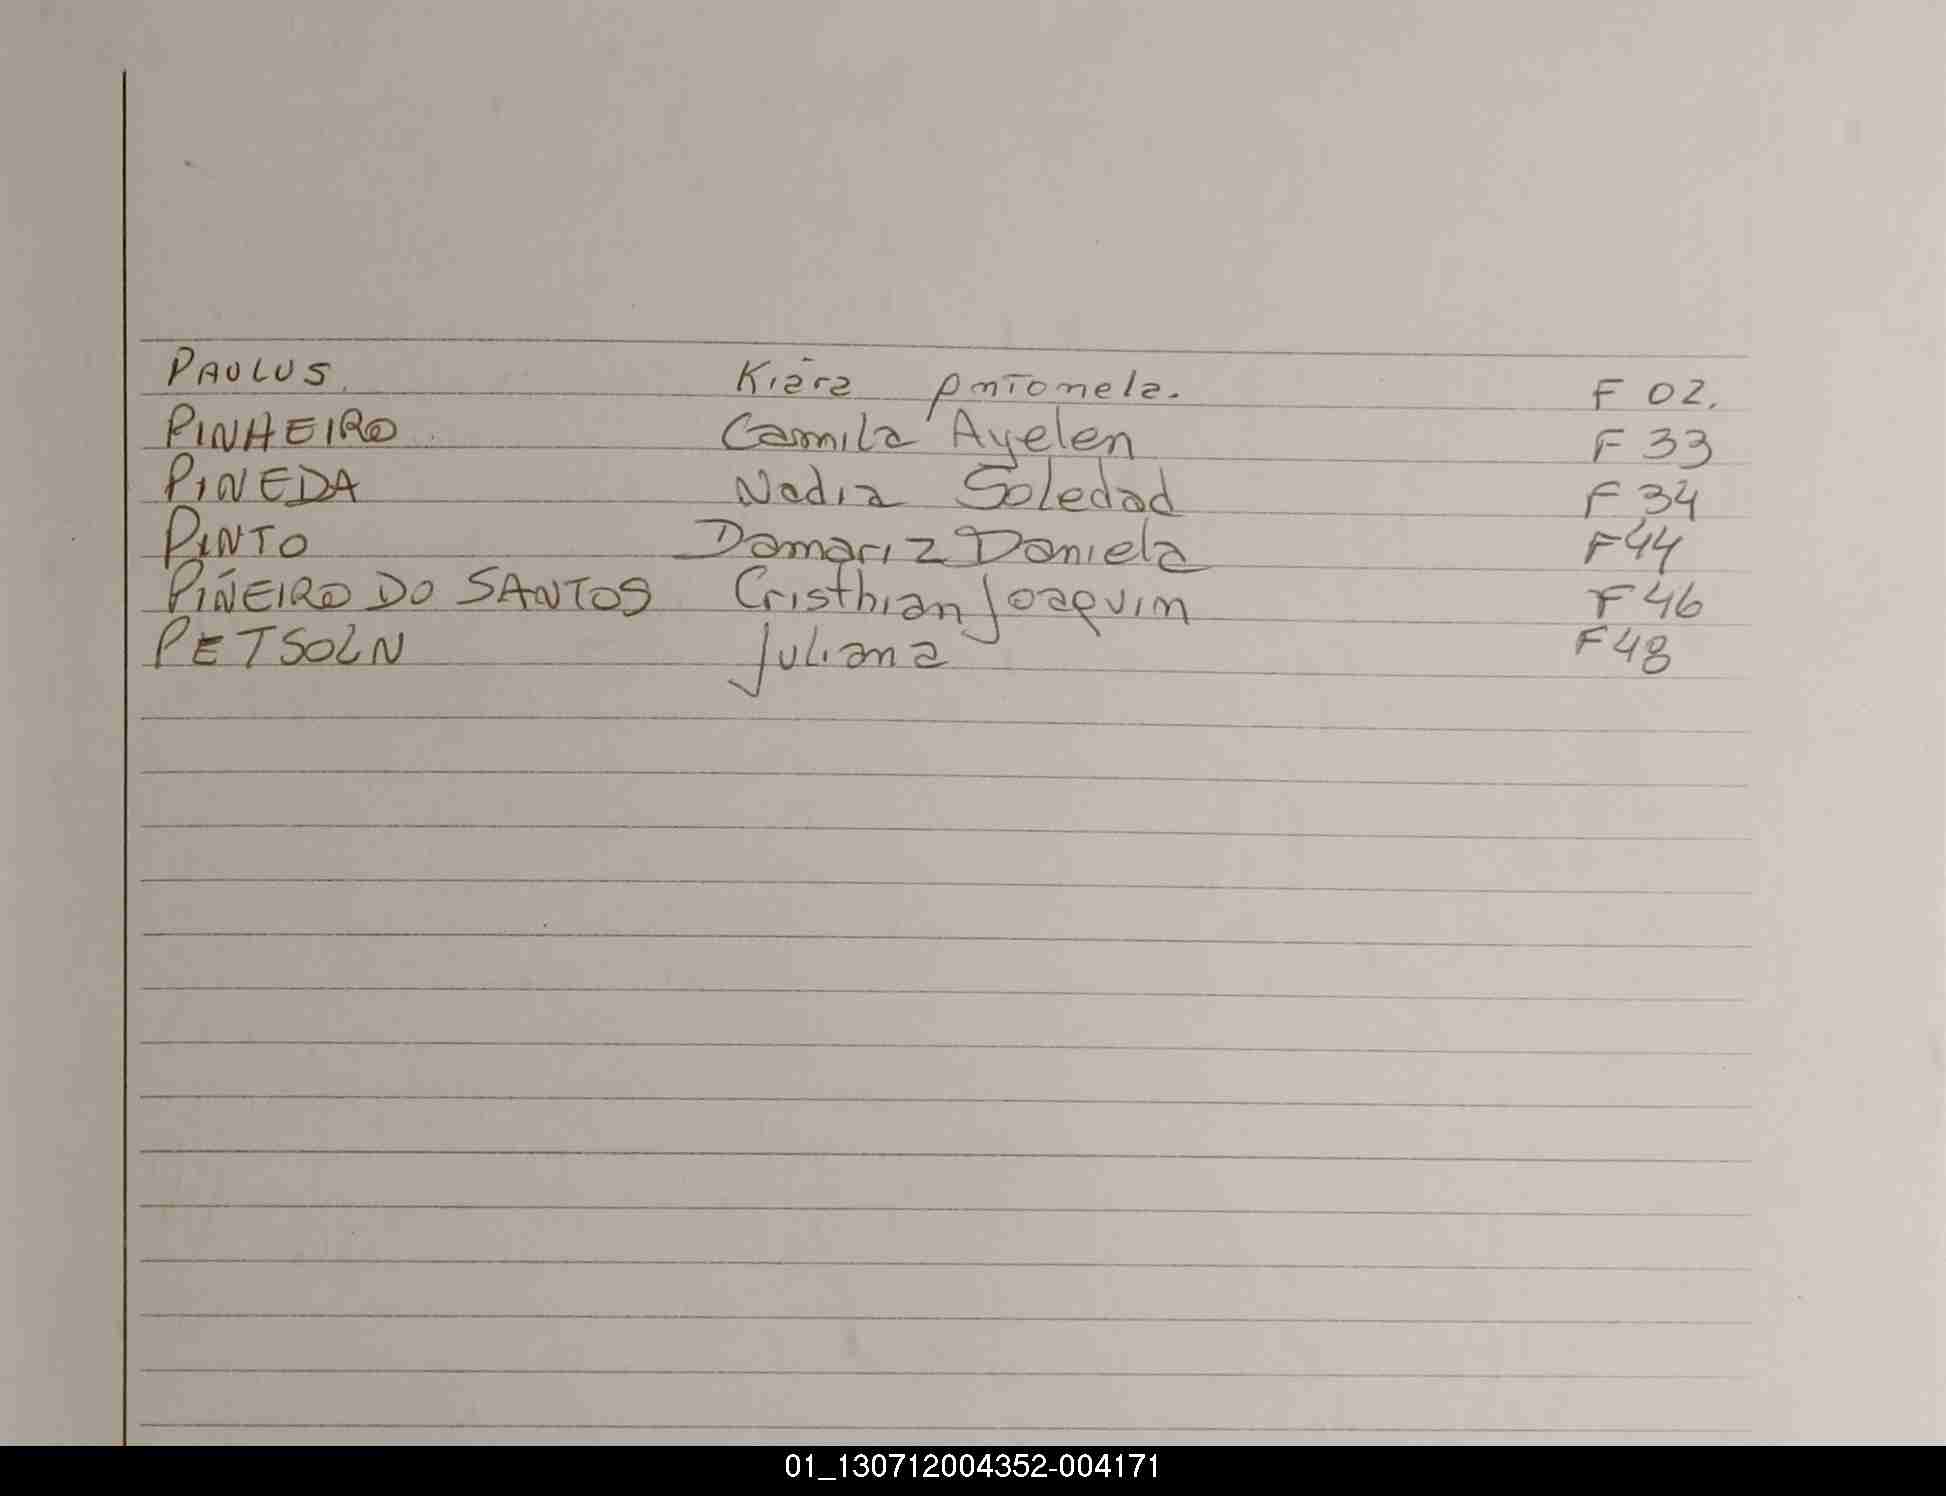 PAULUS. Kiara Antonela. F 02.
PINHEIRO Camila Ayelen F 33
PINEDA Nadia Soledad F 34
PINTO Damariz Daniela F44
PIÑEIRO DO SANTOS Cristhian Joaquim F 46
PETSOLN Juliana F48
01_130712004352-004171